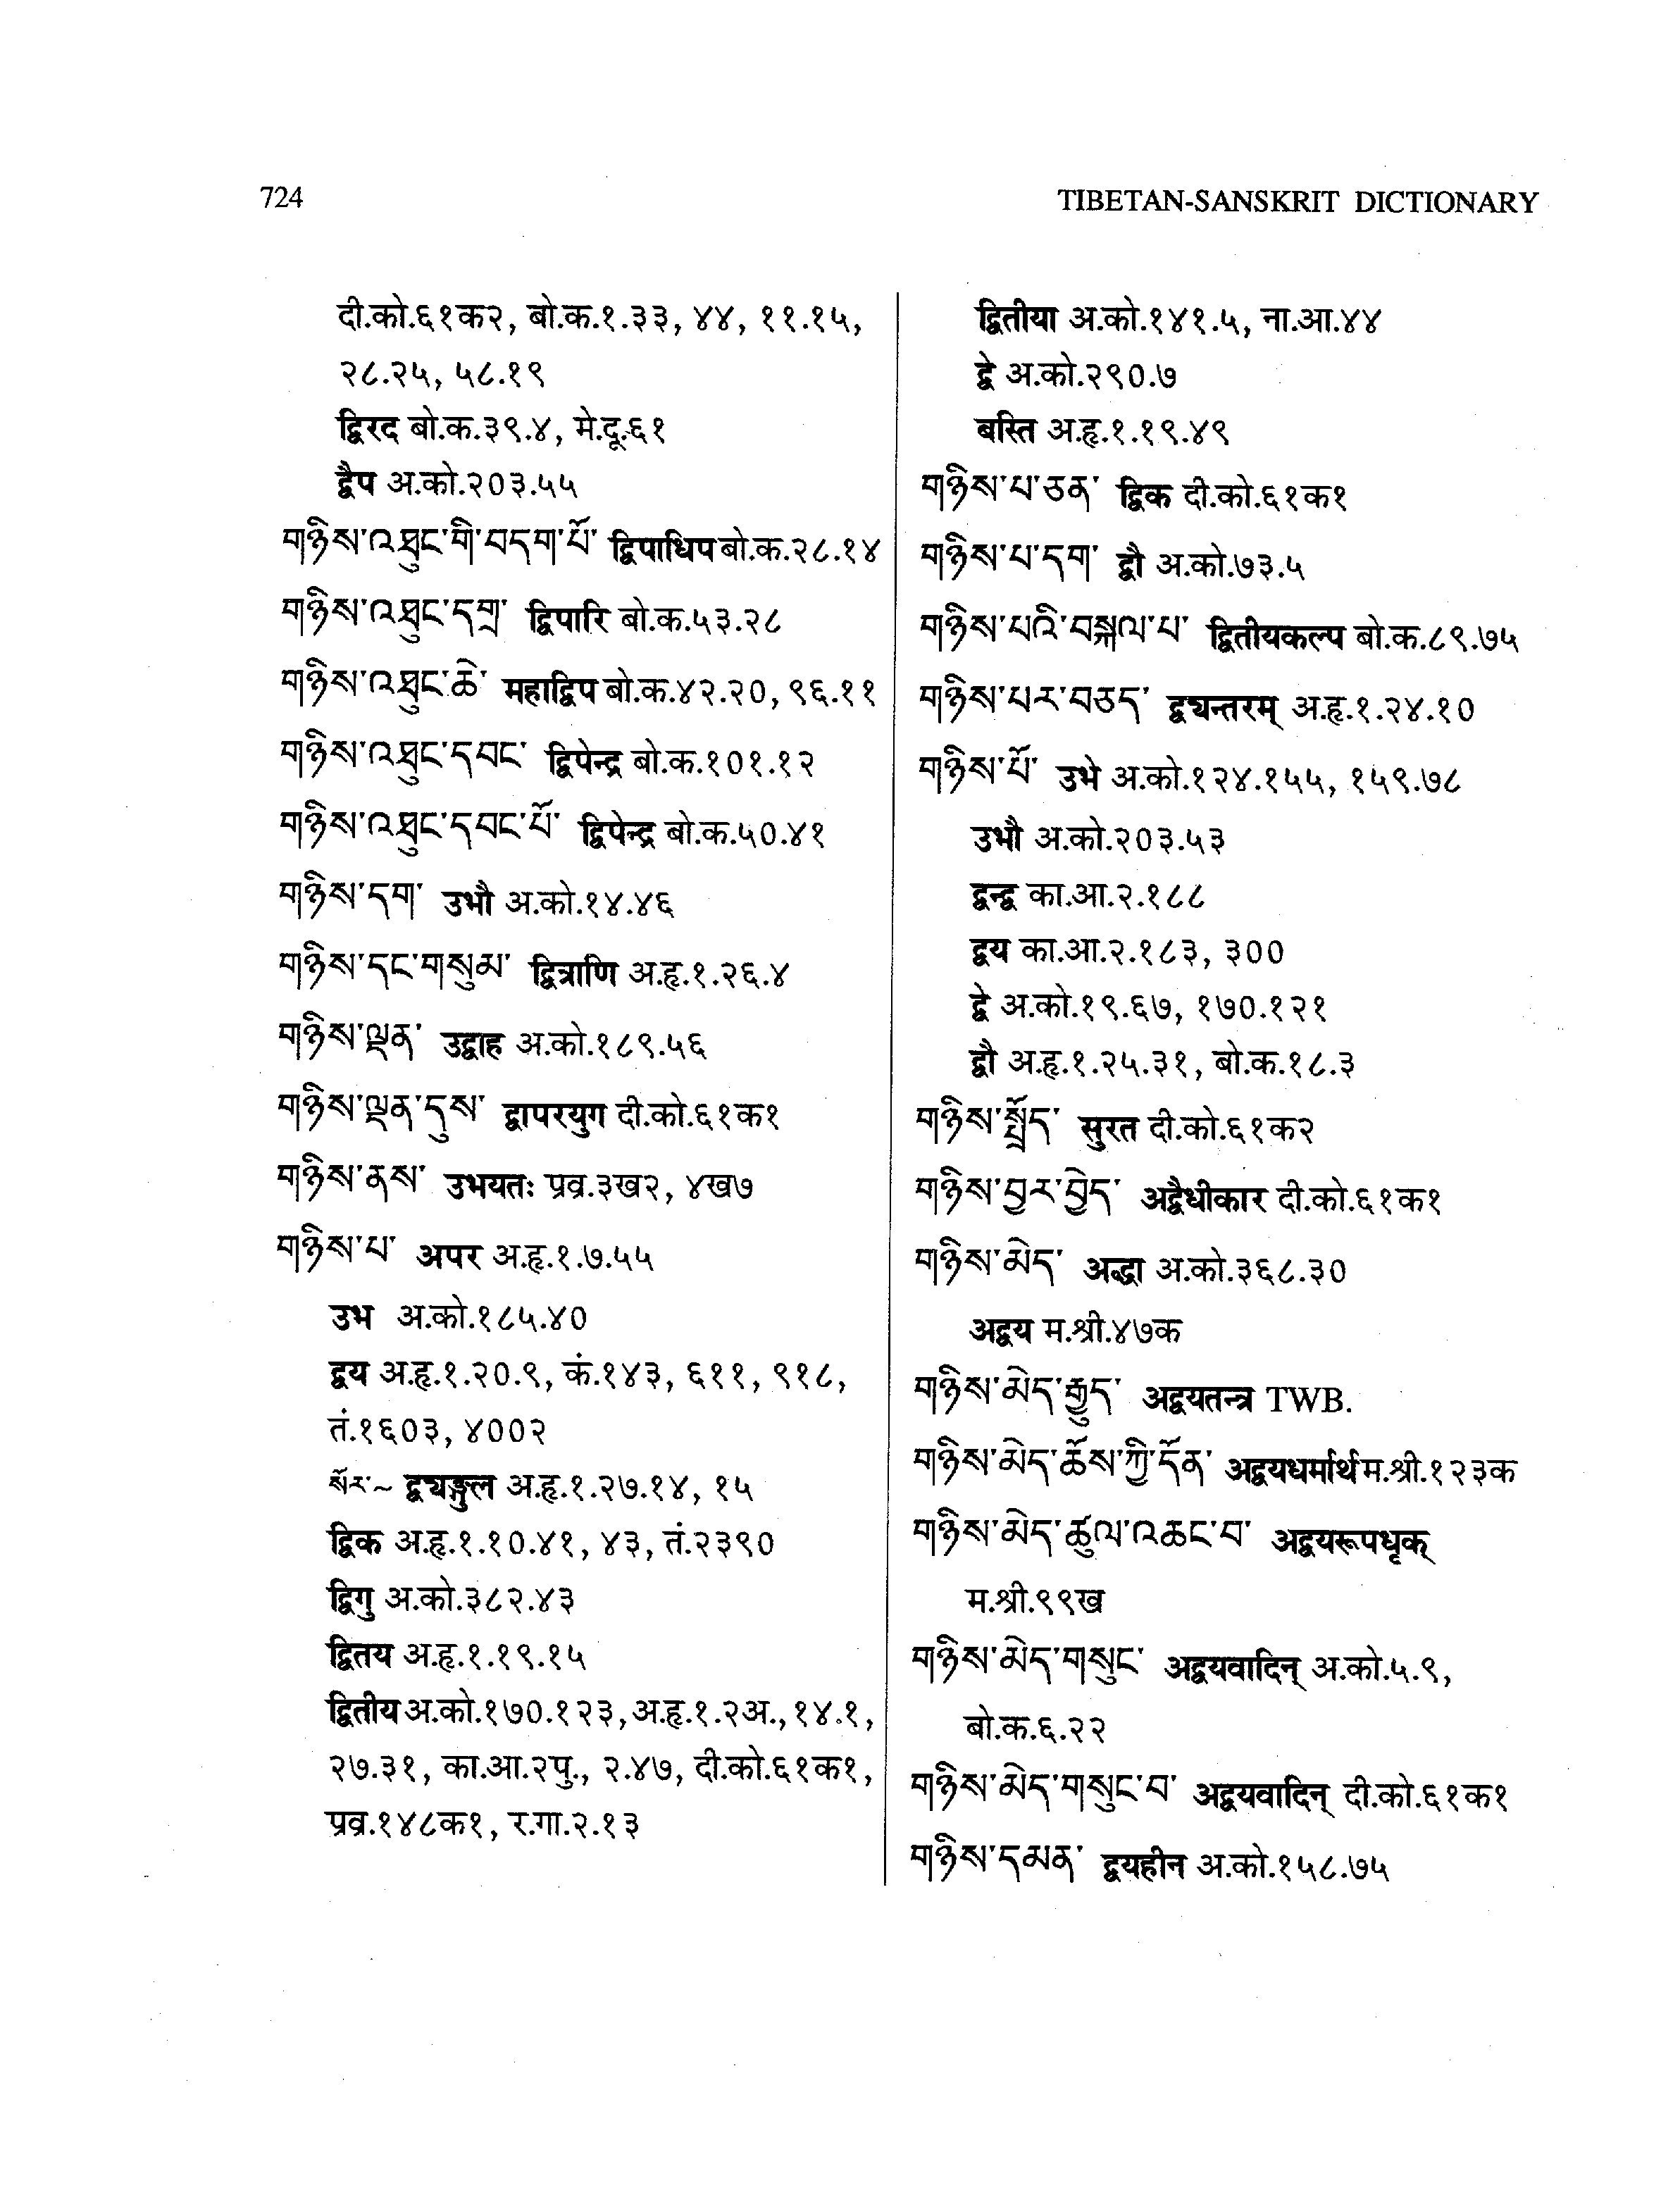 724
TIBETAN-SANSKRIT DICTIONARY
दी.को.६१क२, बो.क.१.३३, ४४, ११.१५,
२८.२५, ५८.१९
द्विरद बो.क.३९.४, मे.दू.६१
द्वैप अ.को.२०३.५५
གཉིས་འཐུང་གི་བདག་པོ་ द्विपाधिप बो.क.२८.१४
གཉིས་འཐུང་དགྲ་ द्विपारि बो.क.५३.२८
གཉིས་འཐུང་ཆེ་ महाद्विप बो.क.४२.२०, ९६.११
གཉིས་འཐུང་དབང་ द्विपेन्द्र बो.क.१०१.१२
གཉིས་འཐུང་དབང་པོ་ द्विपेन्द्र बो.क.५०.४१
གཉིས་དག་ उभौ अ.को.१४.४६
གཉིས་དང་གསུམ་ द्वित्राणि अ.हृ.१.२६.४
གཉིས་ལྡན་ उद्वाह अ.को.१८९.५६
གཉིས་ལྡན་དུས་ द्वापरयुग दी.को.६१क१
གཉིས་ནས་ उभयतः प्रव्र.३ख२, ४ख७
གཉིས་པ་ अपर अ.हृ.१.७.५५
उभ अ.को.१८५.४०
द्वय अ.हृ.१.२०.९, कं.१४३, ६११, ९१८,
तं.१६०३, ४००२
སོར་~ द्व्यङ्गुल अ.हृ.१.२७.१४, १५
द्विक अ.हृ.१.१०.४१, ४३, तं.२३९०
द्विगु अ.को.३८२.४३
द्वितय अ.हृ.१.१९.१५
द्वितीय अ.को.१७०.१२३, अ.हृ.१.२अ., १४.१,
२७.३१, का.आ.२पु., २.४७, दी.को.६१क१,
प्रव्र.१४८क१, र.गा.२.१३
द्वितीया अ.को.१४१.५, ना.आ.४४
द्वे अ.को.२९०.७
बस्ति अ.हृ.१.१९.४९
གཉིས་པ་ཅན་ द्विक दी.को.६१क१
གཉིས་པ་དག་ द्वौ अ.को.७३.५
གཉིས་པའི་བསྐལ་པ་ द्वितीयकल्प बो.क.८९.७५
གཉིས་པར་བཅད་ द्व्यन्तरम् अ.हृ.१.२४.१०
གཉིས་པོ་ उभे अ.को.१२४.१५५, १५९.७८
उभौ अ.को.२०३.५३
द्वन्द्व का.आ.२.१८८
द्वय का.आ.२.१८३, ३००
द्वे अ.को.१९.६७, १७०.१२१
द्वौ अ.हृ.१.२५.३१, बो.क.१८.३
གཉིས་སྤྲོད་ सुरत दी.को.६१क२
གཉིས་བྱར་བྱེད་ अद्वैधीकार दी.को.६१क१
གཉིས་མེད་ अद्धा अ.को.३६८.३०
अद्वय म.श्री.४७क
གཉིས་མེད་རྒྱུད་ अद्वयतन्त्र TWB.
གཉིས་མེད་ཆོས་ཀྱི་དོན་ अद्वयधर्मार्थ म.श्री.१२३क
གཉིས་མེད་ཚུལ་འཆང་བ་ अद्वयरूपधृक्
म.श्री.९९ख
གཉིས་མེད་གསུང་ अद्वयवादिन् अ.को.५.९,
बो.क.६.२२
གཉིས་མེད་གསུང་བ་ अद्वयवादिन् दी.को.६१क१
གཉིས་དམན་ द्वयहीन अ.को.१५८.७५